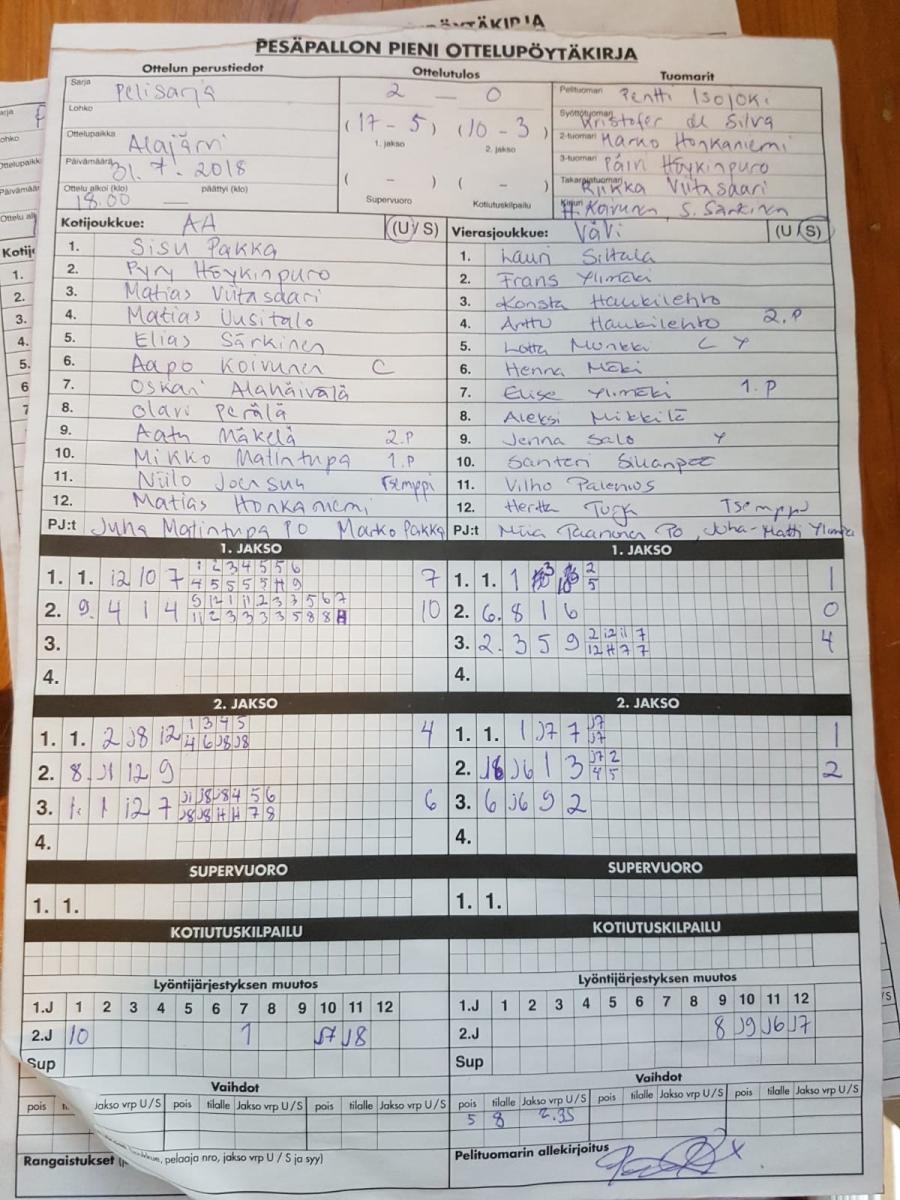 PESÄPALLON PIENI OTTELUPÖYTÄKIRJA
Ottelun perustiedot
Sarja Pelisarja
Lohko
Ottelupaikka Alajärvi
Päivämäärä 31.7.2018
Ottelu alkoi (klo) päättyi (klo)
18.00 —
Ottelutulos
2 — 0
(17 - 5) (10 - 3)
1. jakso 2. jakso
( - ) ( - )
Supervuoro Kotiutuskilpailu
Tuomarit
Pelituomari Pentti Isojoki
Syöttötuomari Kristofer de Silva
2-tuomari Marko Honkaniemi
3-tuomari Päivi Höykinpuro
Takarajatuomari Riikka Viitasaari
Kirjuri H. Koivunen, S. Särkinen
Kotijoukkue: AA (U / S)
1. Sisu Pakka
2. Pyry Höykinpuro
3. Matias Viitasaari
4. Matias Uusitalo
5. Elias Särkinen
6. Aapo Koivunen C
7. Oskari Alahäivälä
8. Olavi Perälä
9. Aatu Mäkelä 2.P
10. Mikko Matintupa 1.P
11. Niilo Joensuu Tsemppi
12. Matias Honkaniemi
PJ:t Juha Matintupa PO Marko Pakka
Vierasjoukkue: VäVi (U / S)
1. Lauri Siltala
2. Frans Ylimäki
3. Konsta Haukilehto
4. Arttu Haukilehto 2.P
5. Lotta Munkki C Y
6. Henna Mäki
7. Elise Ylimäki 1.P
8. Aleksi Mikkilä
9. Jenna Salo Y
10. Santeri Sillanpää
11. Vilho Palenius
12. Hertta Tsemppi
PJ:t Paananen PO, Juha-Matti
1. JAKSO
1. 1. 12 10 7 1 2 3 4 5 5 6 7
4 5 5 5 5 H 9
2. 9. 4 1 4 9 12 1 11 2 3 3 5 6 7 10
11 2 3 3 3 3 5 8 8
3.
4.
1. JAKSO
1. 1. 1 2 1
5
2. 6. 8 1 6 0
3. 2. 3 5 9 2 12 11 7 4
12 H 7 7
4.
2. JAKSO
1. 1. 2 J8 12 1 3 4 5 4
4 6 J8 J8
2. 8. J1 12 9
3. 1. 1 12 7 J1 J8 J8 4 5 6 6
J8 J8 H H 7 8
4.
2. JAKSO
1. 1. 1 J7 7 J7 1
J7
2. J6 1 3 J7 2 2
4 5
3. 6 J6 9 2
4.
SUPERVUORO
1. 1.
SUPERVUORO
1. 1.
KOTIUTUSKILPAILU
KOTIUTUSKILPAILU
Lyöntijärjestyksen muutos
1.J 1 2 3 4 5 6 7 8 9 10 11 12
2.J 10 1 J7 J8
Sup
Lyöntijärjestyksen muutos
1.J 1 2 3 4 5 6 7 8 9 10 11 12
2.J 8 J9 J6 J7
Sup
Vaihdot
pois Jakso vrp U / S pois tilalle Jakso vrp U / S pois tilalle Jakso vrp U / S
Vaihdot
pois tilalle Jakso vrp U / S pois tilalle Jakso vrp U / S pois tilalle Jakso vrp U / S
5 8 2.3S
Rangaistukset pelaaja nro, jakso vrp U / S ja syy)
Pelituomarin allekirjoitus